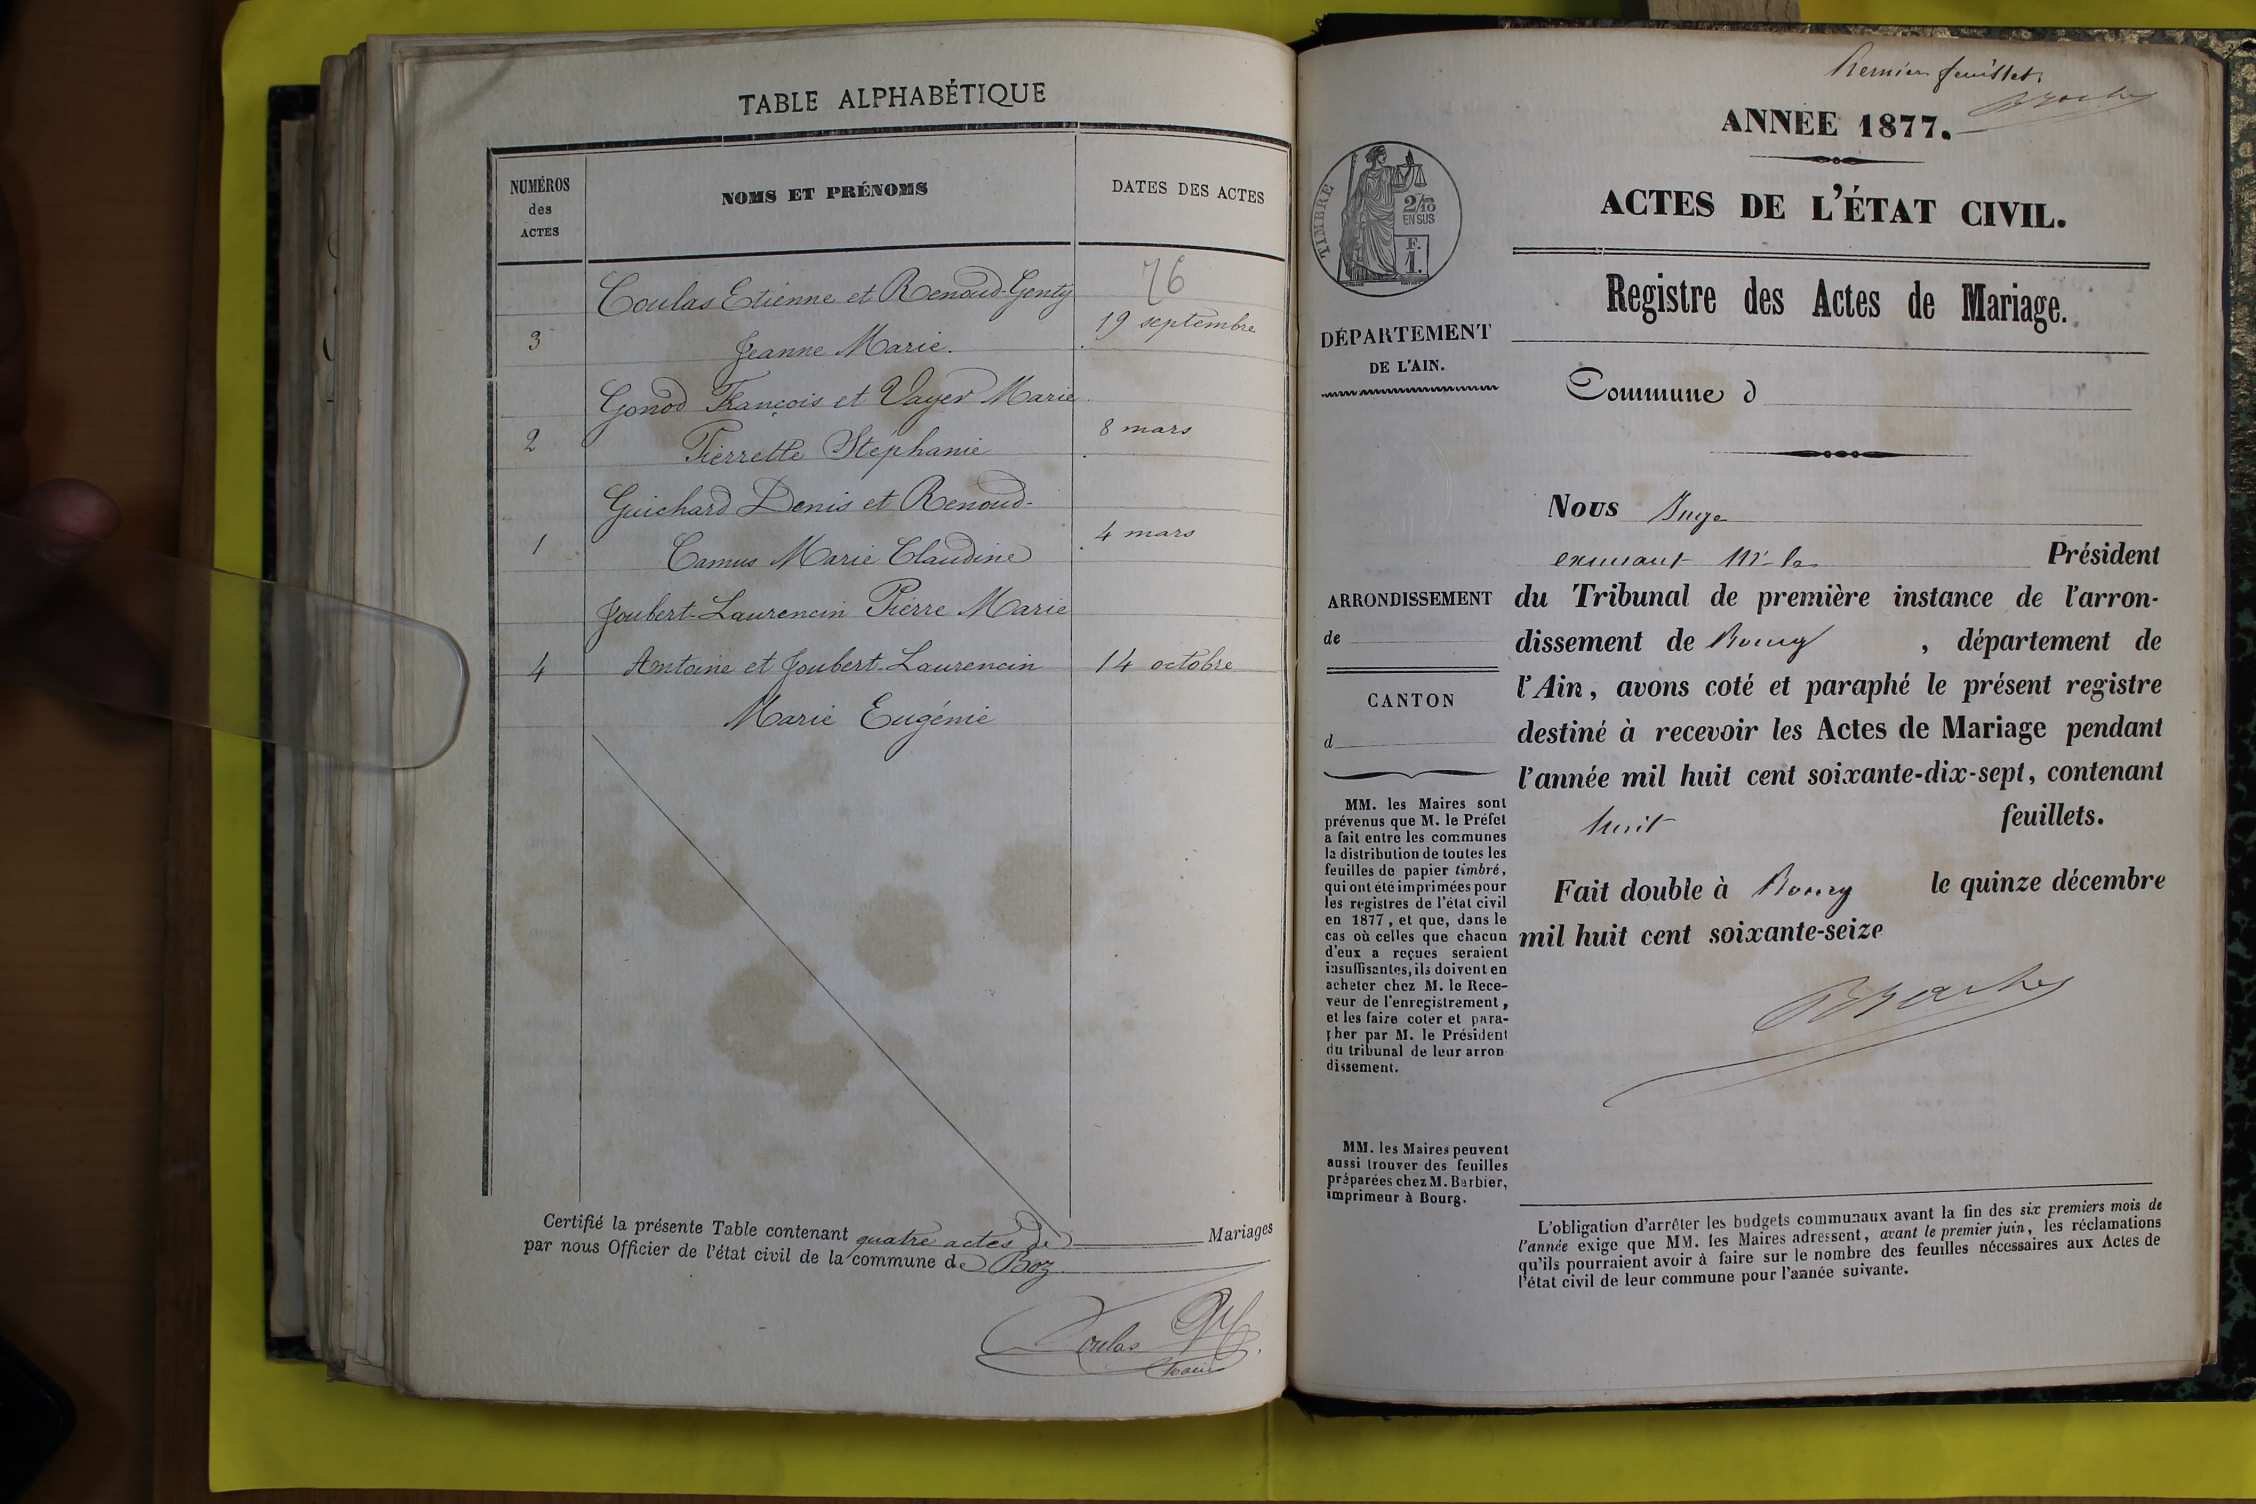 TABLE ALPHABÉTIQUE
NUMÉROS
des
ACTES
NOMS ET PRÉNOMS
DATES DES ACTES
76
Coulas Etienne et Renoud-Genty
19 septembre
3
Jeanne Marie.
Gonod François et Vayer Marie
8 mars
2
Pierrette Stéphanie
Guichard Denis et Renoud-
4 mars
1
Camus Marie Claudine
Joubert-Laurencin Pierre Marie
4
Antoine et Joubert-Laurencin
14 octobre
Marie Eugénie
Certifié la présente Table contenant quatre actes de Mariages
par nous Officier de l'état civil de la commune de Boz
Coulas
feuillet
ANNÉE 1877.
ACTES DE L'ÉTAT CIVIL.
Registre des Actes de Mariage.
TIMBRE
2/10
EN SUS
F.
1.
DÉPARTEMENT
DE L'AIN.
Commune d
Nous
Président
du Tribunal de première instance de l'arron-
dissement de Bourg , département de
l'Ain, avons coté et paraphé le présent registre
destiné à recevoir les Actes de Mariage pendant
l'année mil huit cent soixante-dix-sept, contenant
huit feuillets.
Fait double à Bourg le quinze décembre
mil huit cent soixante-seize
ARRONDISSEMENT
de
CANTON
d
MM. les Maires sont
prévenus que M. le Préfet
a fait entre les communes
la distribution de toutes les
feuilles de papier timbré,
qui ont été imprimées pour
les registres de l'état civil
en 1877, et que, dans le
cas où celles que chacun
d'eux a reçues seraient
insuffisantes, ils doivent en
acheter chez M. le Rece-
veur de l'enregistrement,
et les faire coter et para-
pher par M. le Président
du tribunal de leur arron
dissement.
MM. les Maires peuvent
aussi trouver des feuilles
préparées chez M. Barbier,
imprimeur à Bourg.
L'obligation d'arrêter les budgets communaux avant la fin des six premiers mois de
l'année exige que MM. les Maires adressent, avant le premier juin, les réclamations
qu'ils pourraient avoir à faire sur le nombre des feuilles nécessaires aux Actes de
l'état civil de leur commune pour l'année suivante.